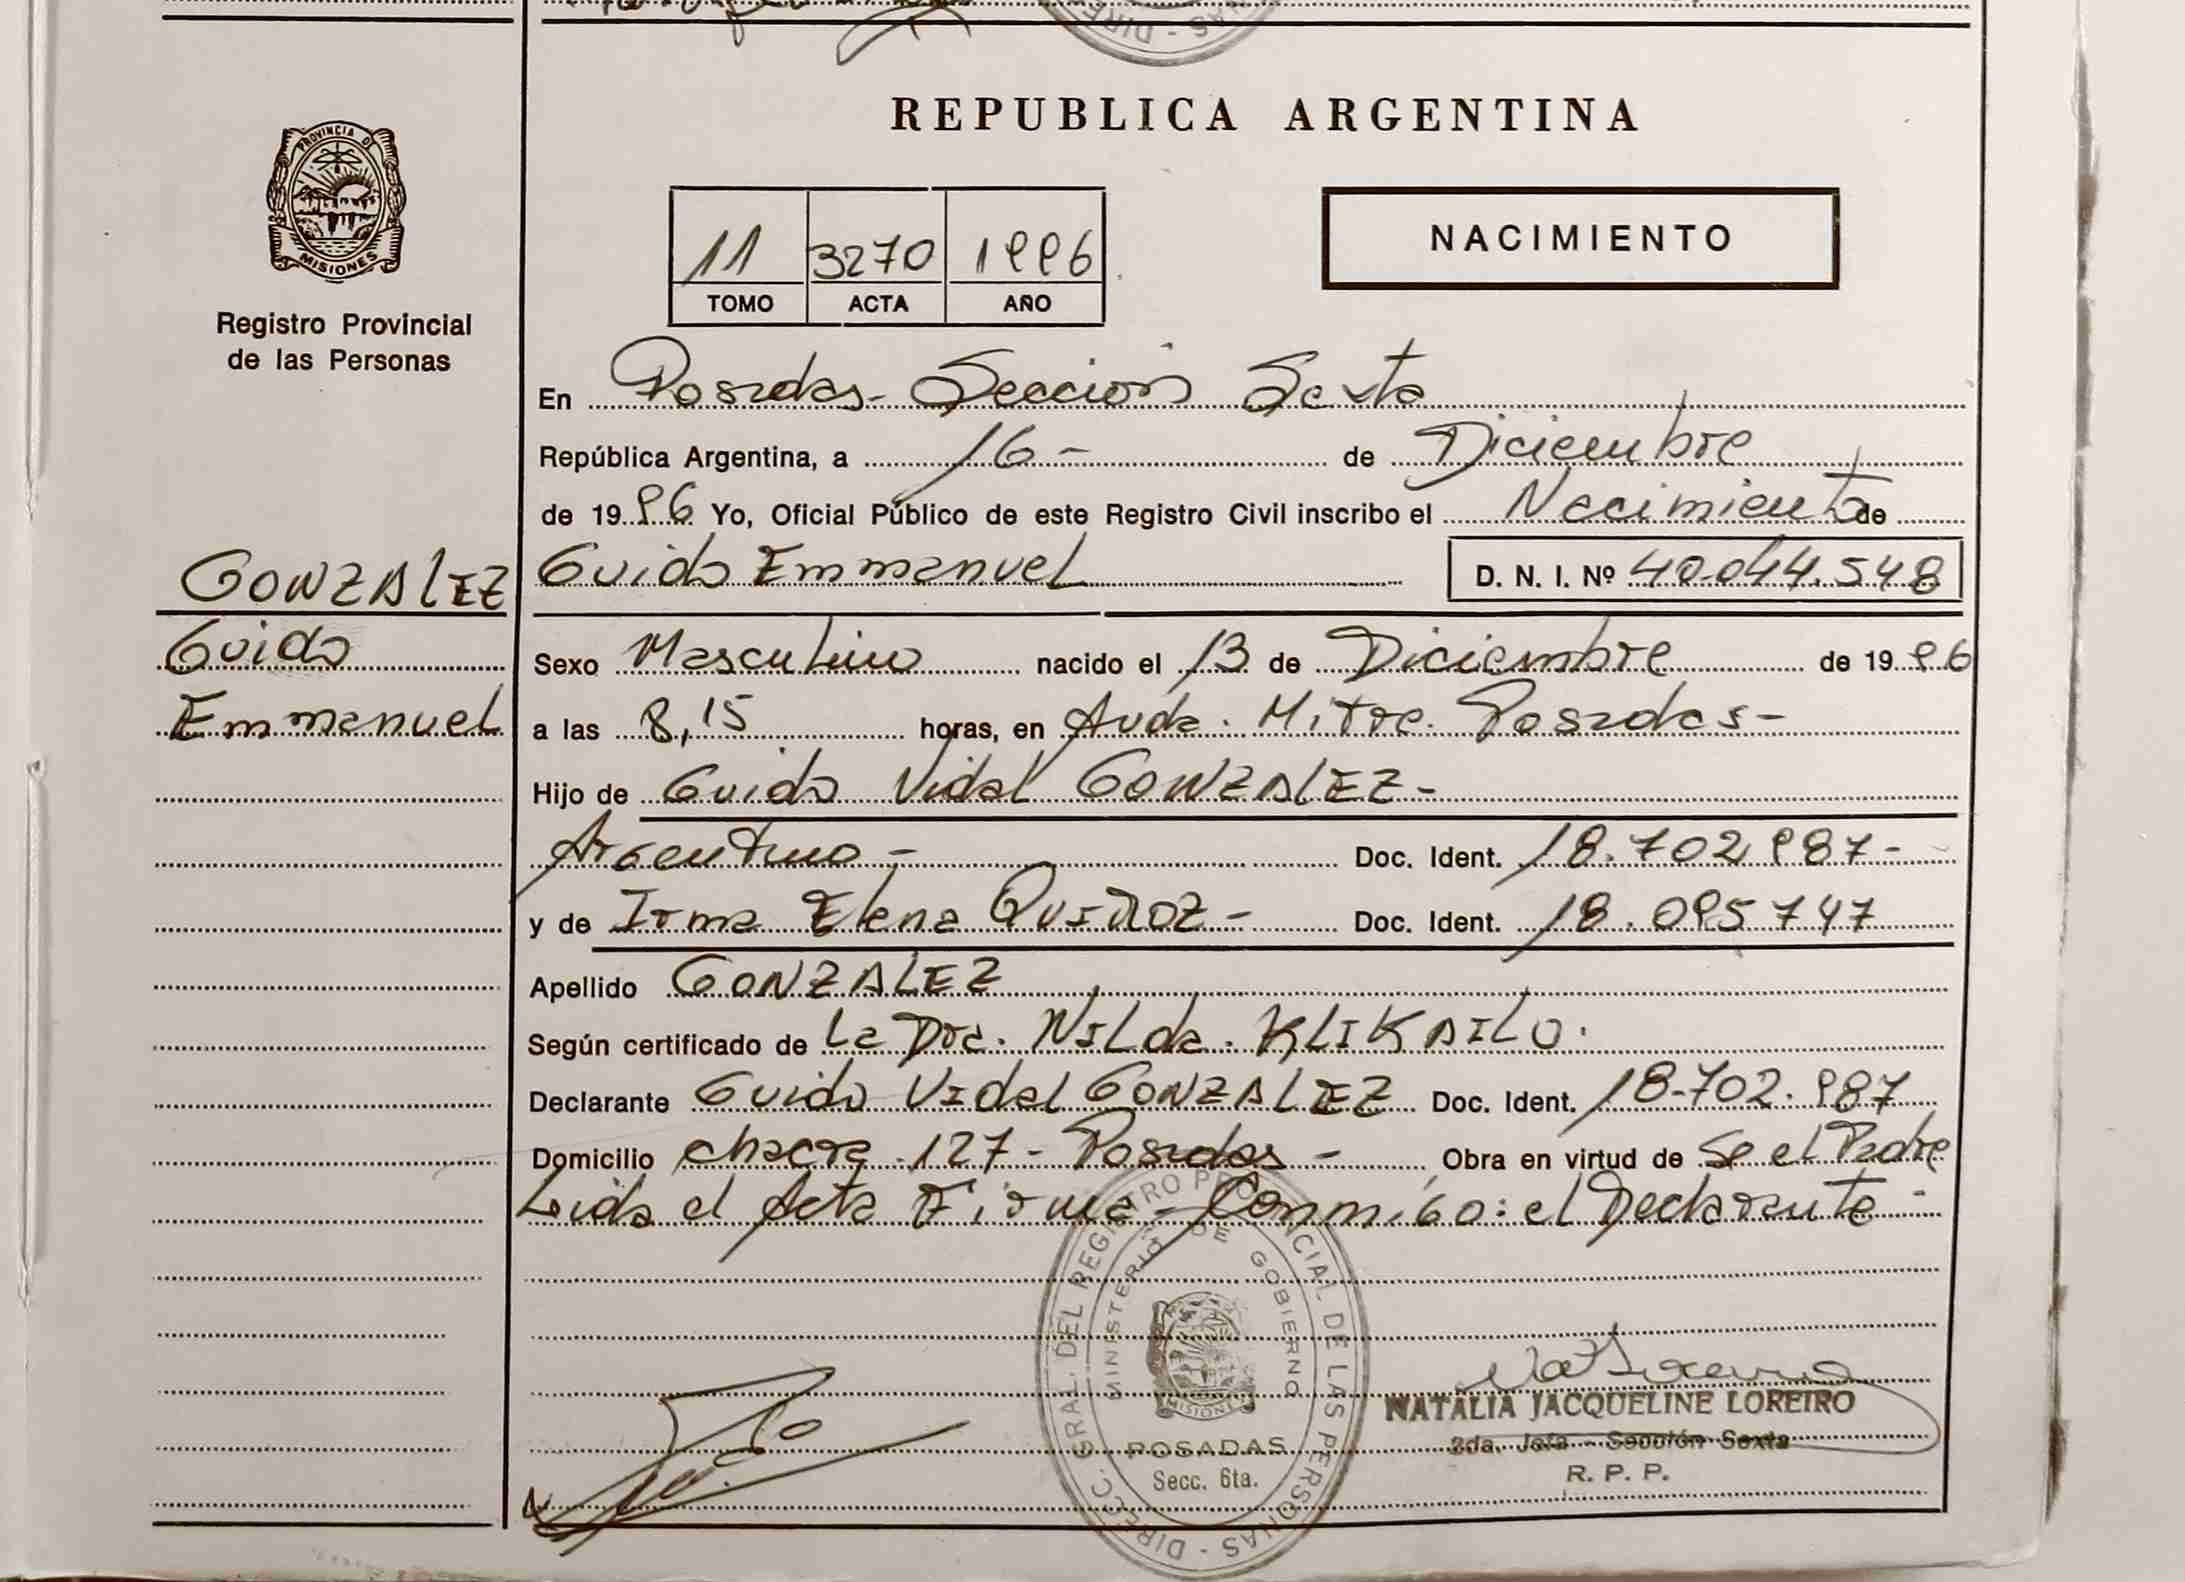 REPUBLICA ARGENTINA
PROVINCIA DE
MISIONES
Registro Provincial
de las Personas
NACIMIENTO
11 3270 1996
TOMO ACTA AÑO
En Posadas - Sección Sexta
República Argentina, a 16 - de Diciembre
de 1996 Yo, Oficial Público de este Registro Civil inscribo el Nacimiento de
GONZALEZ
Guido Emmanuel D. N. I. Nº 40.044.548
Guido
Emmanuel
Sexo Masculino nacido el 13 de Diciembre de 1996
a las 8,15 horas, en Avda. Mitre. Posadas -
Hijo de Guido Vidal GONZALEZ -
Argentino - Doc. Ident. 18.702.987 -
y de Irma Elena Doc. Ident. 18.095747
Apellido GONZALEZ
Según certificado de La Dra. Nilda. KLIKAILO.
Declarante Guido Vidal GONZALEZ Doc. Ident. 18.702.987
Domicilio chacra 127 - Posadas - Obra en virtud de Se el Padre
Leida el Acta Firma Conmigo: el Declarante -
DIREC. GRAL. DEL REGISTRO PROVINCIAL DE LAS PERSONAS
MINISTERIO DE GOBIERNO
MISIONES
POSADAS
Secc. 6ta.
NATALIA JACQUELINE LOREIRO
2da. Jefa - Sección Sexta
R. P. P.